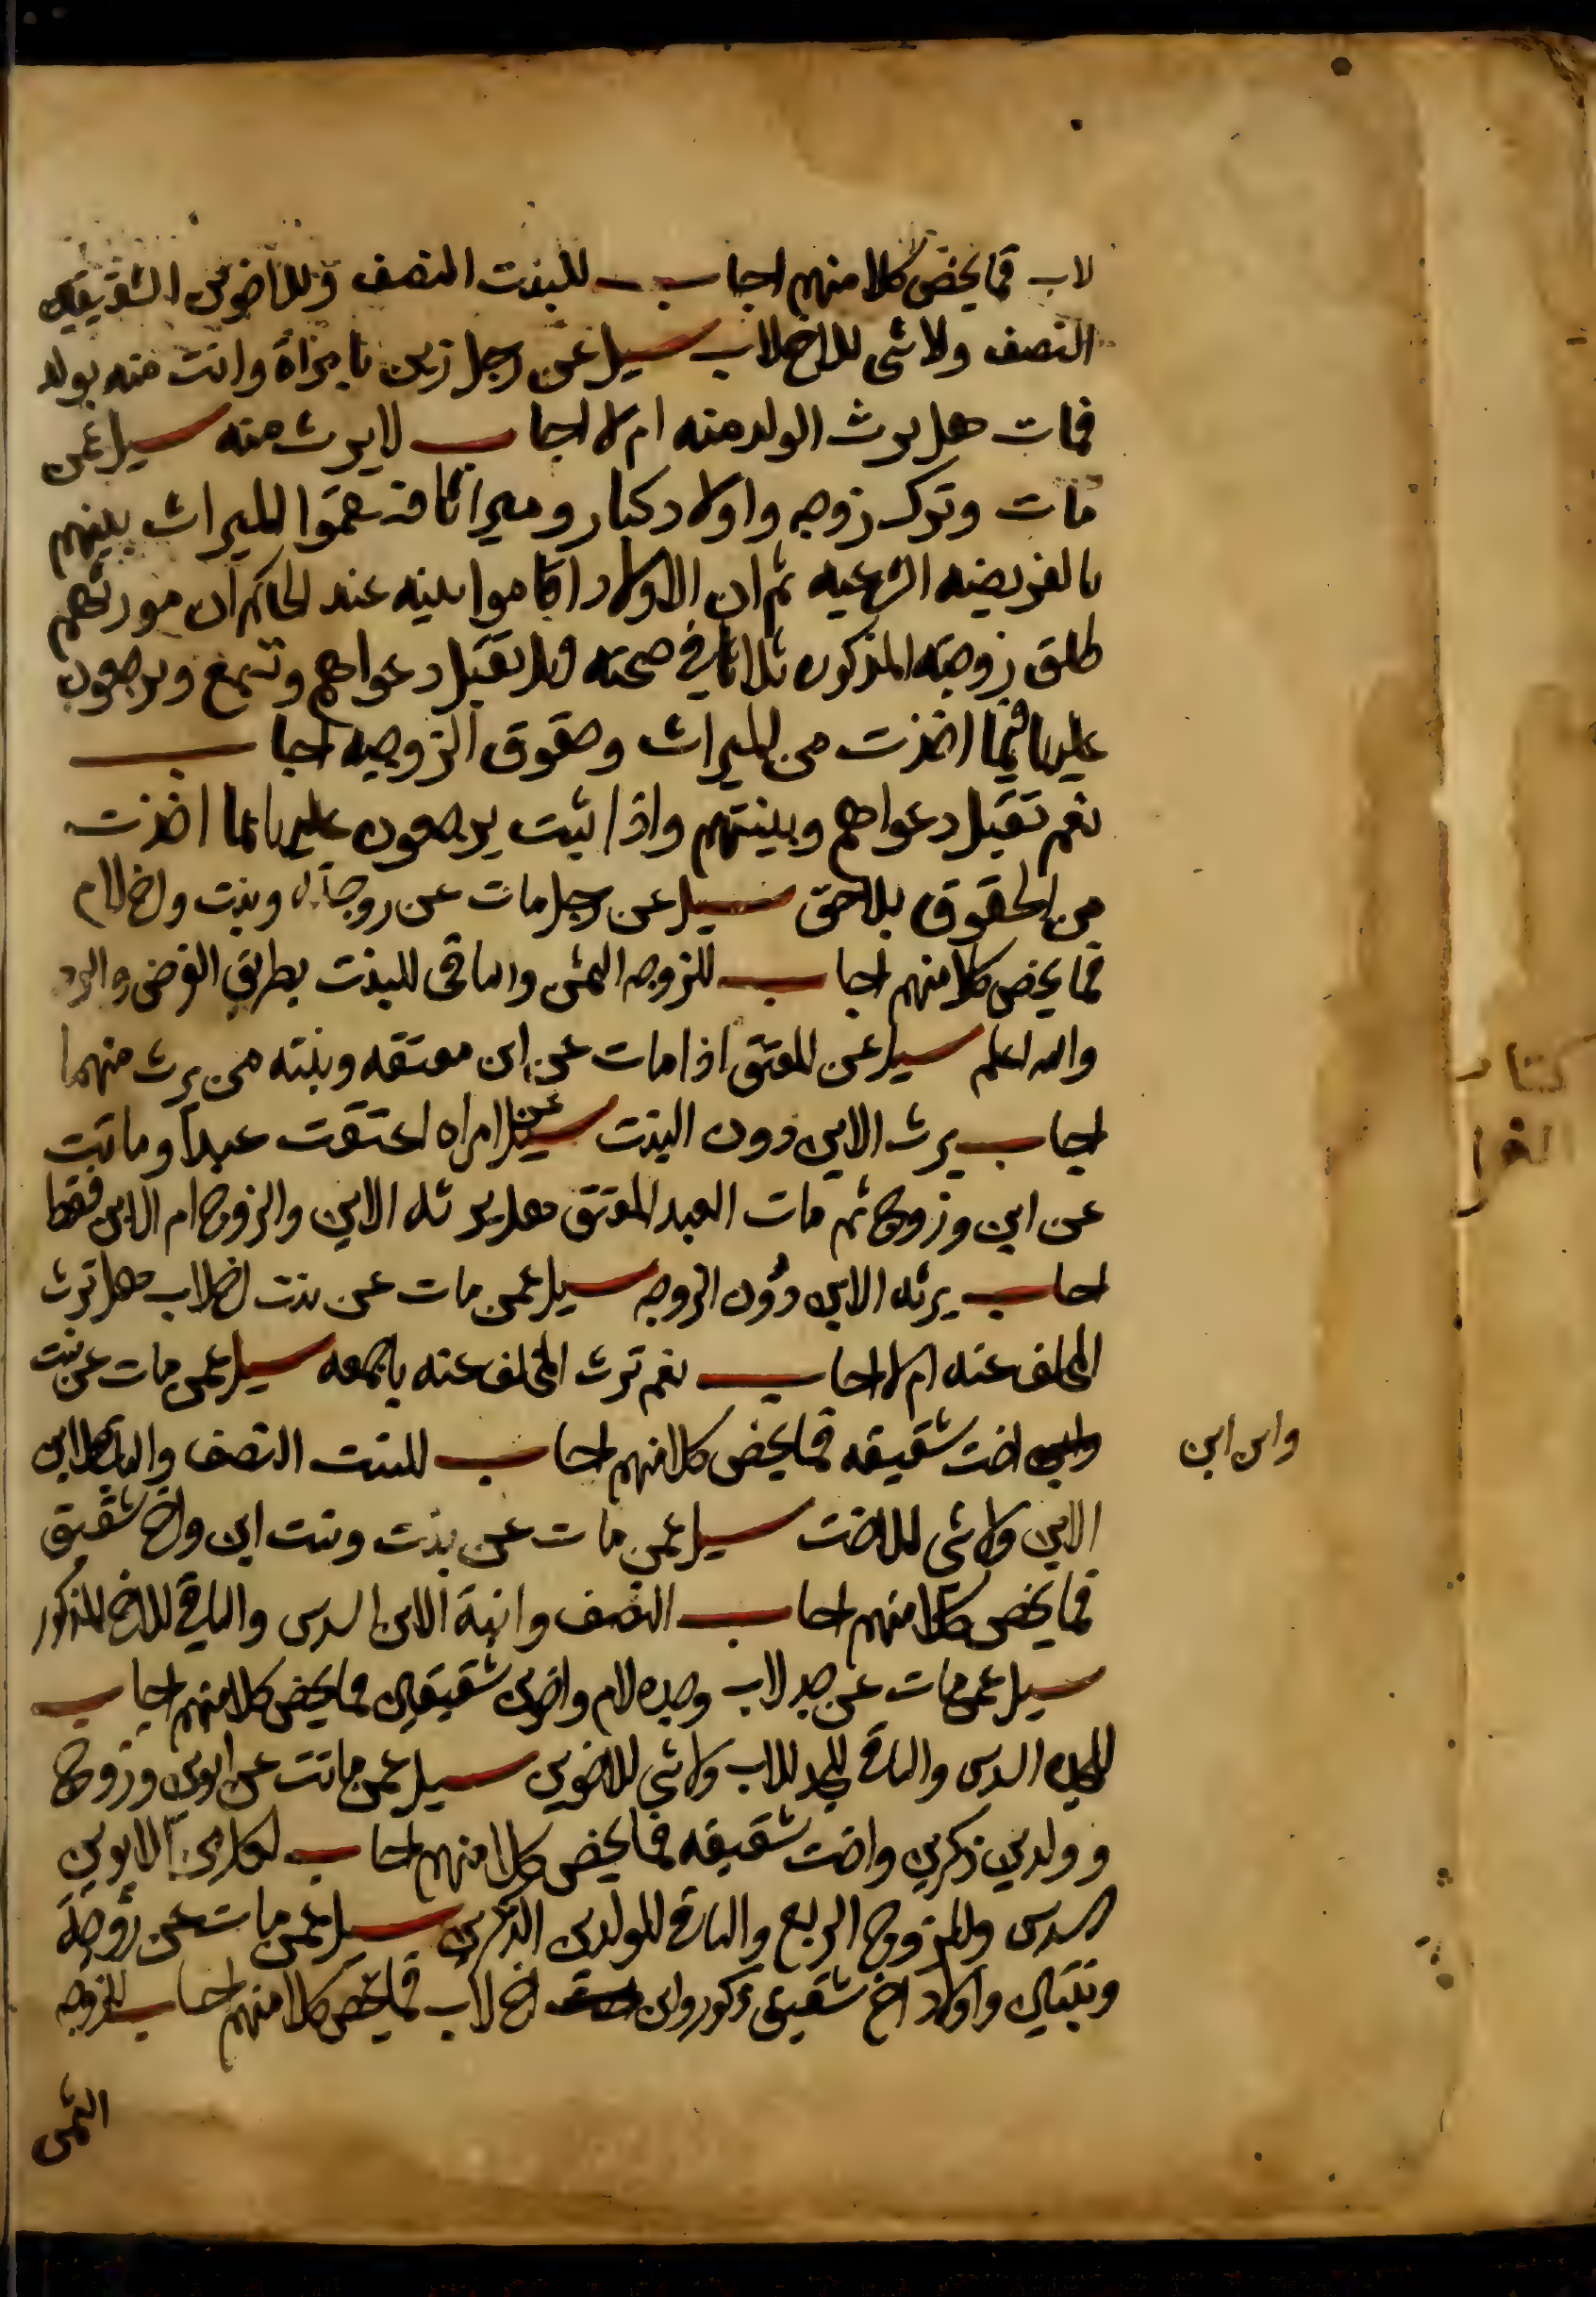 لاب فما يخص كلا منهم اجاب للبنت النصف وللاخوين الشقيقين
النصف ولا شى للاخ لاب سيل عن رجل زنى بامراة واتت منه بولد
فمات هل يرث الولد منه ام لا اجاب لا يرث منه سيل عمن
مات وترك زوجه واولاد كبار وميراثا فقسموا الميراث بينهم
بالفريضه الشرعيه ثم ان الاولاد اقاموا بينه عند الحاكم ان مورثهم
طلق زوجته المذكوره ثلاثا في صحته هل تقبل دعواهم وتسمع ويرجعون
عليها فيما اخذت من الميراث وحقوق الزوجيه اجاب
نعم تقبل دعواهم وبينتهم واذا ثبت يرجعون عليها بما اخذت
من الحقوق بلا حق سيل عن رجل مات عن زوجة وبنت واخ لام
فما يخص كلا منهم اجاب للزوجه الثمن والباقى للبنت بطريق الفرض والرد
والله اعلم سيل عن المعتق اذا مات عن ابن معتقه وبنته من يرث منهما
اجاب يرث الابن دون البنت سيل عن امراه اعتقت عبدا وماتت
عن ابن وزوج ثم مات العبد المعتق هل يرثه الابن والزوج ام الابن فقط
اجاب يرثه الابن دون الزوج سيل عمن مات عن بنت اخ لاب هل ترث
المخلف عنه ام لا اجاب نعم ترث المخلف عنه باجمعه سيل عمن مات عن بنت
واخت شقيقه فما يخص كلا منهم اجاب للبنت النصف والباقى لابن
وابن ابن
الابن ولا شى للاخت سيل عمن مات عن بنت وبنت ابن واخ شقيق
فما يخص كلا منهم اجاب النصف وابنة الابن السدس والباقي للاخ المذكور
سيل عمن مات عن جد لاب وجده لام واخوين شقيقين فما يخص كلا منهم اجاب
للجده السدس والباقي للجد للاب ولا شي للاخوين سيل عمن ماتت عن ابوين وزوج
وولدين ذكرين واخت شقيقه فما يخص كلا منهم اجاب لكل من الابوين
السدس وللزوج الربع والباقي للولدين الذكرين سيل عمن مات عن زوجة
وبنتين واولاد اخ شقيق ذكور وابن اخ لاب فما يخص كلا منهم اجاب للزوجه
الثمن